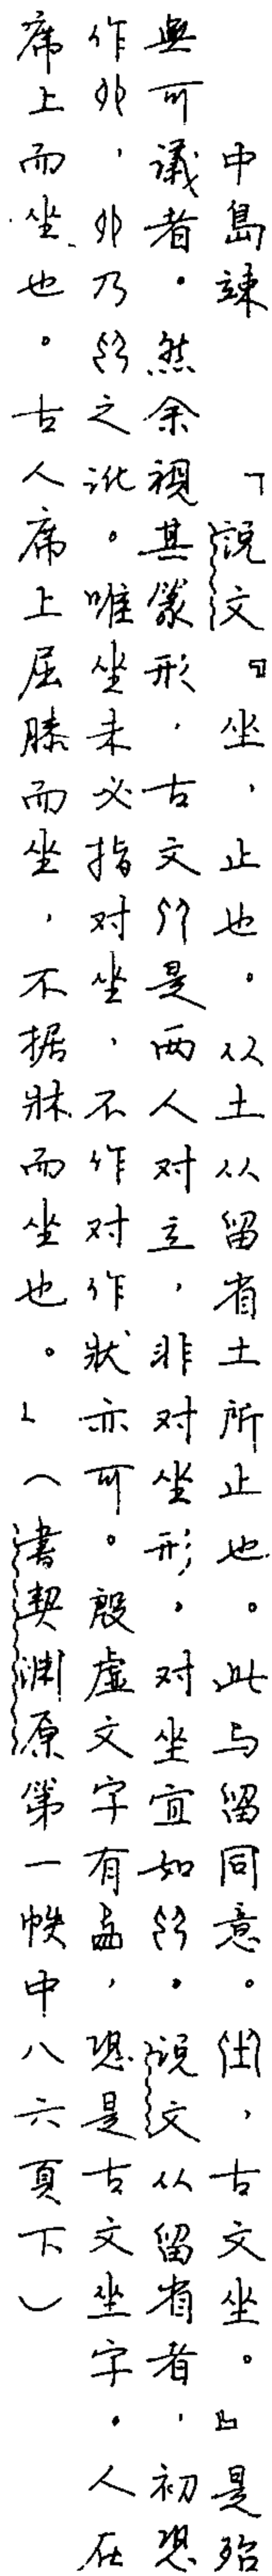 中島竦　「說文『坐，止也。从土从留省土所止也。此与留同意。，古文坐。』是殆
無可議者。然余視其篆形，古文是兩人对立，非对坐形。对坐宜如。說文从留省者，初恐
作，乃之訛。唯坐未必指对坐，不作对作狀亦可。殷虛文字有，恐是古文坐字。人在
席上而坐也。古人席上屈膝而坐，不据牀而坐也。」（書契淵原第一帙中八六頁下）